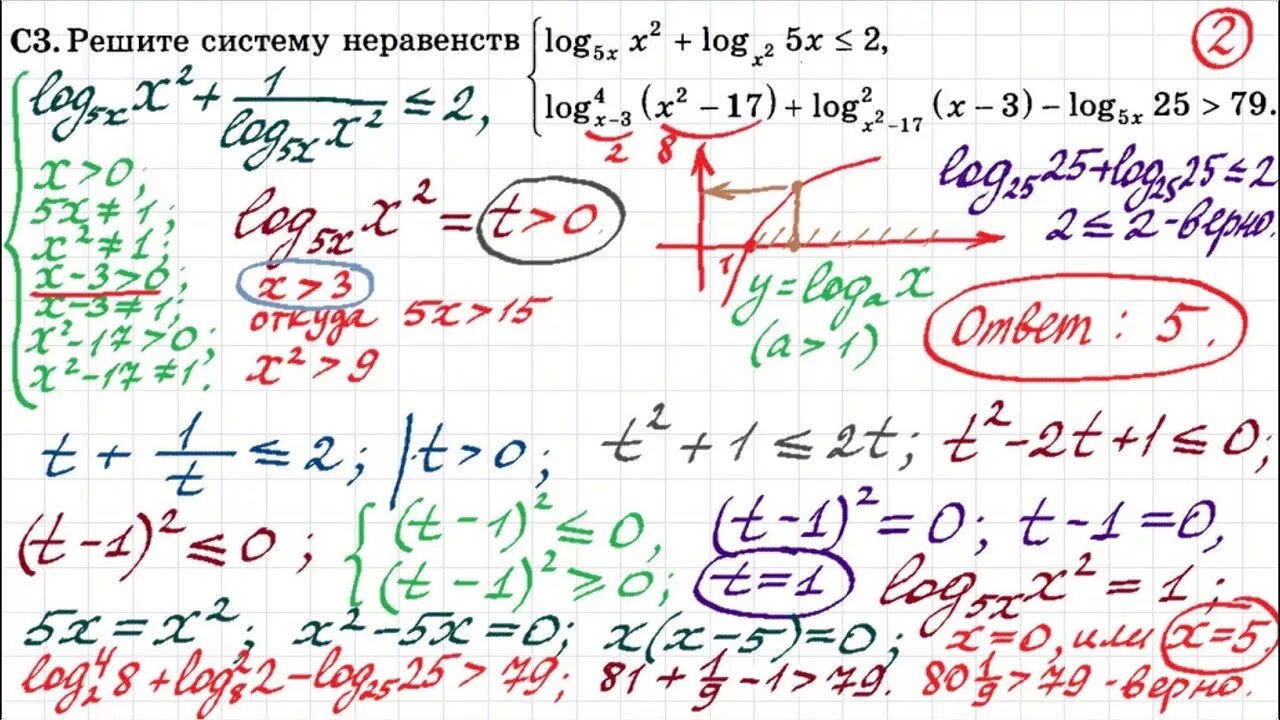 С3. Решите систему неравенств { log₅ₓ x² + log_{x²} 5x ≤ 2,
log⁴_{x−3} (x² − 17) + log²_{x²−17} (x − 3) − log₅ₓ 25 > 79.
2
2 8
log₅ₓ x² + 1/(log₅ₓ x²) ≤ 2,
x > 0;
5x ≠ 1;
x² ≠ 1;
x − 3 > 0;
x − 3 ≠ 1;
x² − 17 > 0;
x² − 17 ≠ 1.
log₅ₓ x² = t > 0.
x > 3
откуда 5x > 15
x² > 9
1
y = logₐ x
(a > 1)
log₂₅ 25 + log₂₅ 25 ≤ 2
2 ≤ 2 - верно.
Ответ: 5.
t + 1/t ≤ 2; | t > 0; t² + 1 ≤ 2t; t² − 2t + 1 ≤ 0;
(t − 1)² ≤ 0; { (t − 1)² ≤ 0, (t − 1)² = 0; t − 1 = 0,
(t − 1)² ≥ 0; t = 1 log₅ₓ x² = 1;
5x = x²; x² − 5x = 0; x(x − 5) = 0; x = 0, или x = 5.
log⁴₂ 8 + log²₈ 2 − log₂₅ 25 > 79; 81 + 1/9 − 1 > 79. 80 1/9 > 79 - верно.